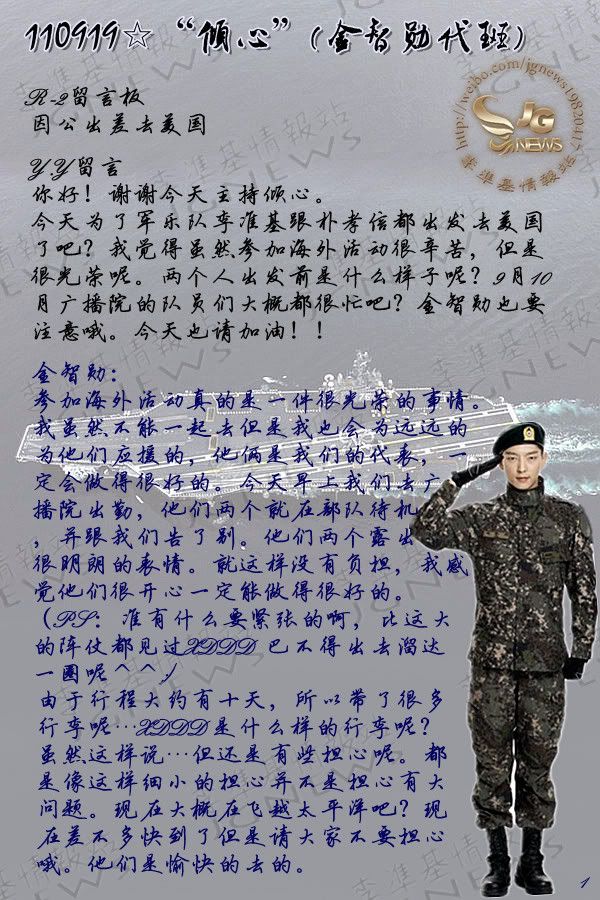 110919☆“倾心”(金智勋代班)
http://weibo.com/jgnews19820417
JG
NEWS
李準基情報站
R-2留言板
因公出差去美国
YY留言
你好！谢谢今天主持倾心。
今天为了军乐队李准基跟朴孝信都出发去美国
了吧？我觉得虽然参加海外活动很辛苦，但是
很光荣呢。两个人出发前是什么样子呢？9月10
月广播院的队员们大概都很忙吧？金智勋也要
注意哦。今天也请加油！！
金智勋：
参加海外活动真的是一件很光荣的事情。
我虽然不能一起去但是我也会为远远的
为他们应援的，他俩是我们的代表，一
定会做得很好的。今天早上我们去广
播院出勤，他们两个就在部队待机
，并跟我们告了别。他们两个露出
很明朗的表情。就这样没有负担，我感
觉他们很开心一定能做得很好的。
（PS：谁有什么要紧张的啊，比这大
的阵仗都见过XDDD 巴不得出去溜达
一圈呢^^）
由于行程大约有十天，所以带了很多
行李呢…XDDD是什么样的行李呢？
虽然这样说…但还是有些担心呢。都
是像这样细小的担心并不是担心有大
问题。现在大概在飞越太平洋吧？现
在差不多快到了但是请大家不要担心
哦。他们是愉快的去的。
1